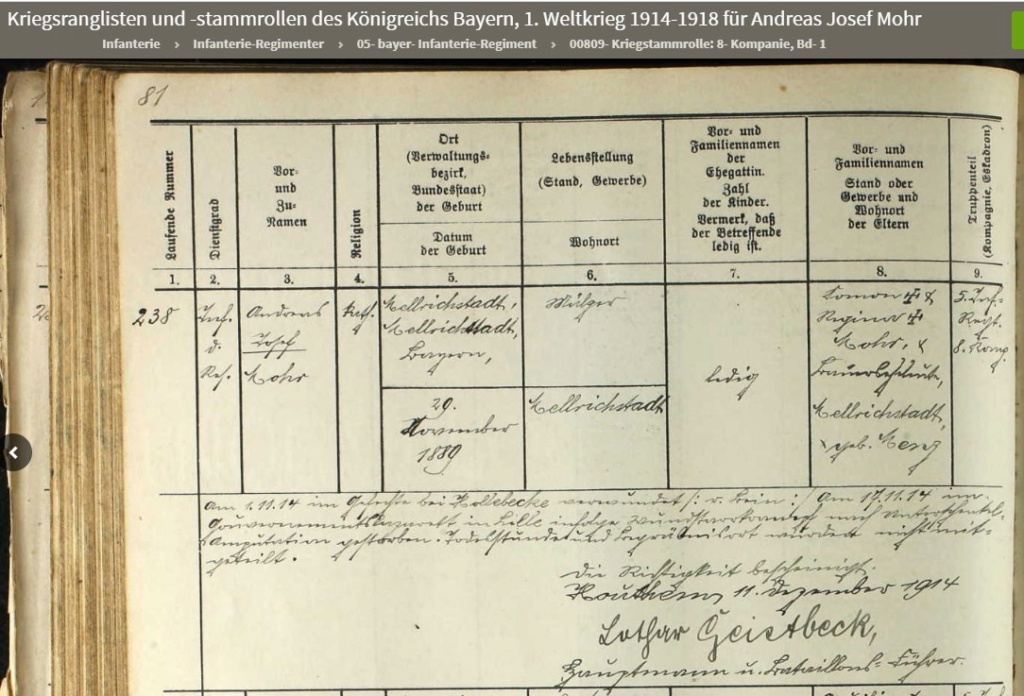 Kriegsranglisten und -stammrollen des Königreichs Bayern, 1. Weltkrieg 1914-1918 für Andreas Josef Mohr
Infanterie › Infanterie-Regimenter › 05- bayer- Infanterie-Regiment › 00809- Kriegstammrolle: 8- Kompanie, Bd- 1
81
Laufende Nummer
Dienstgrad
Vor-
und
Zu-
Namen
Religion
Ort
(Verwaltungs-
bezirk,
Bundesstaat)
der Geburt
Datum
der Geburt
Lebensstellung
(Stand, Gewerbe)
Wohnort
Vor- und
Familiennamen
der
Ehegattin.
Zahl
der Kinder.
Vermerk, daß
der Betreffende
ledig ist.
Vor- und
Familiennamen
Stand oder
Gewerbe und
Wohnort
der Eltern
Truppenteil
(Kompagnie, Eskadron)
1. 2. 3. 4. 5. 6. 7. 8. 9.
238
Inf.
d.
Res.
Andreas
Josef
Mohr
kath.
Mellrichstadt,
Mellrichstadt,
Bayern,
29.
November
1889
Mellrichstadt
ledig
&
Regina
Mohr, &
Mellrichstadt,
geb.
5. Inf.
Regt.
8. Komp.
Am 1.11.14 im Gefechte bei Hollebecke verwundet /: r. Bein :/ Am 17.11.14 im
Gouvernementslazarett in Lille infolge Wundstarrkrampf nach Unterschenkel-
Amputation gestorben. Todesstunde und Begräbnisort wurden nicht mit-
geteilt.
Die Richtigkeit bescheinigt.
Houthem, 11. Dezember 1914
Lothar Geistbeck,
Hauptmann u. Bataillons-Führer.